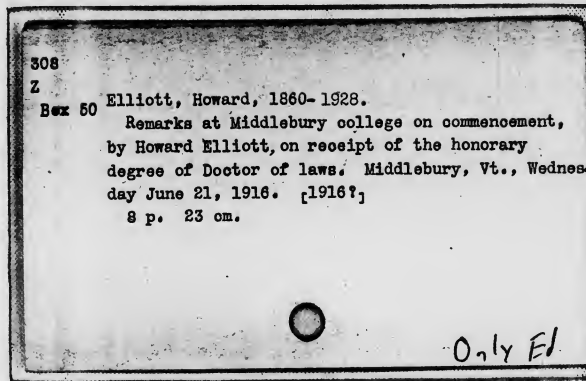 308
Z
Box 50 Elliott, Howard, 1860-1928.
Remarks at Middlebury college on commencement,
by Howard Elliott, on receipt of the honorary
degree of Doctor of laws. Middlebury, Vt., Wednes
day June 21, 1916. [1916?]
8 p. 23 cm.
Only Ed